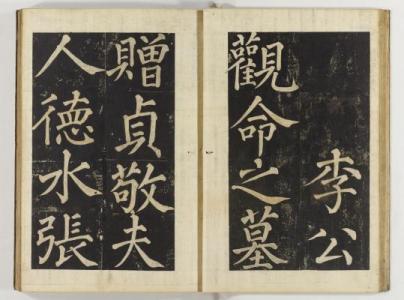 李公
觀命之墓
贈貞敬夫
人德水張